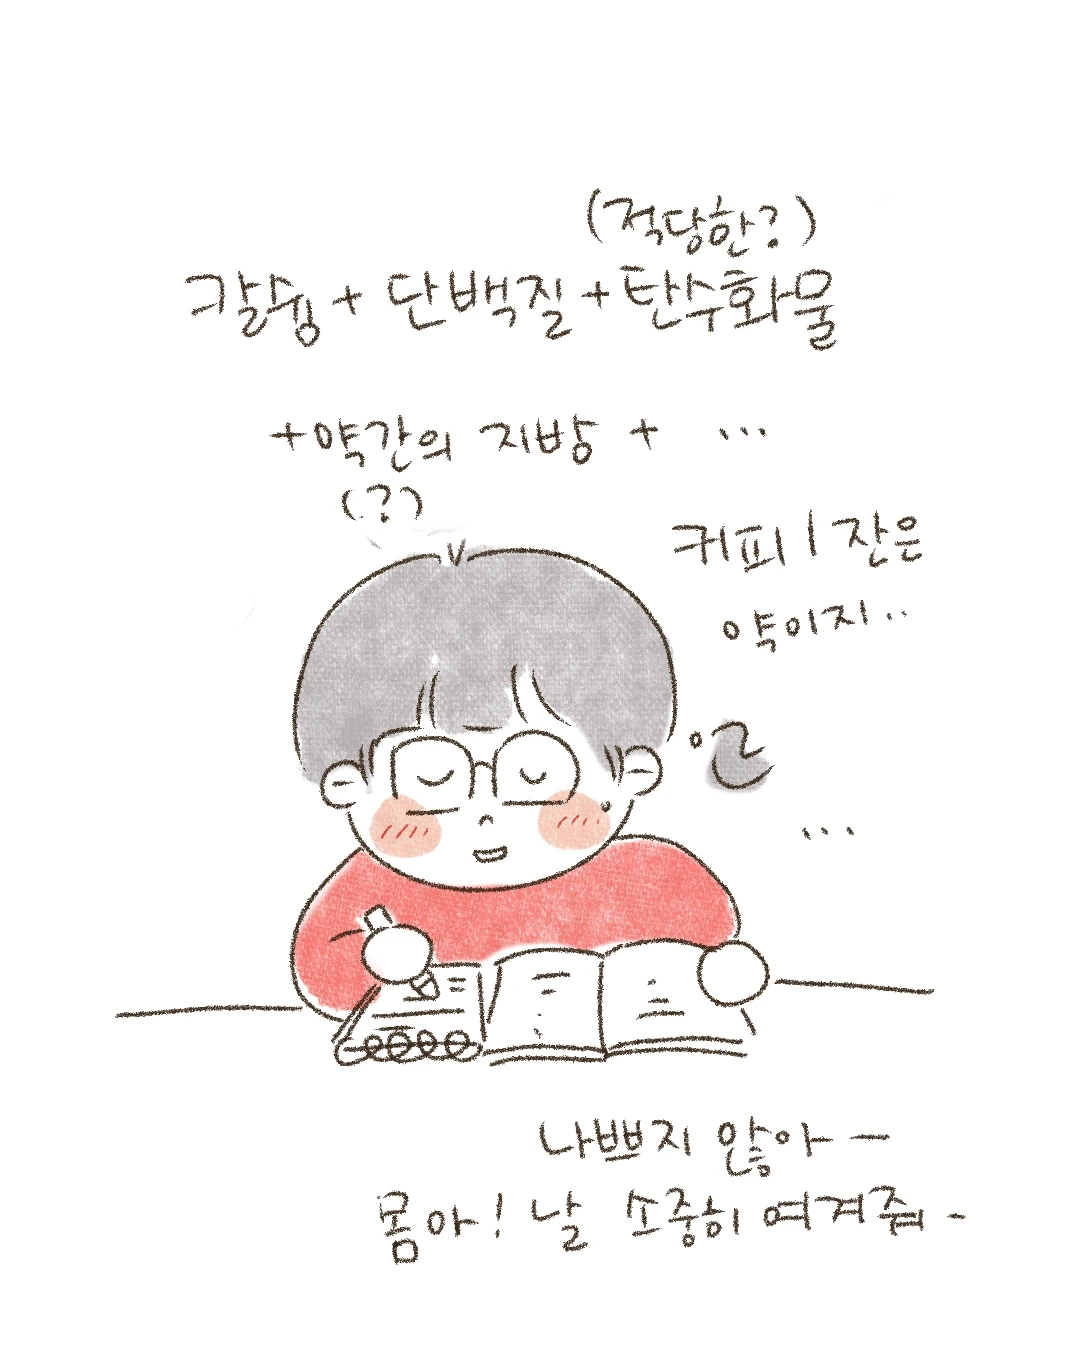 (적당한?)
칼슘 + 단백질 + 탄수화물
+ 약간의 지방 + ...
(?)
커피 1 잔은
약이지..
은
...
나쁘지 않아 —
몸아! 날 소중히 여겨줘 -